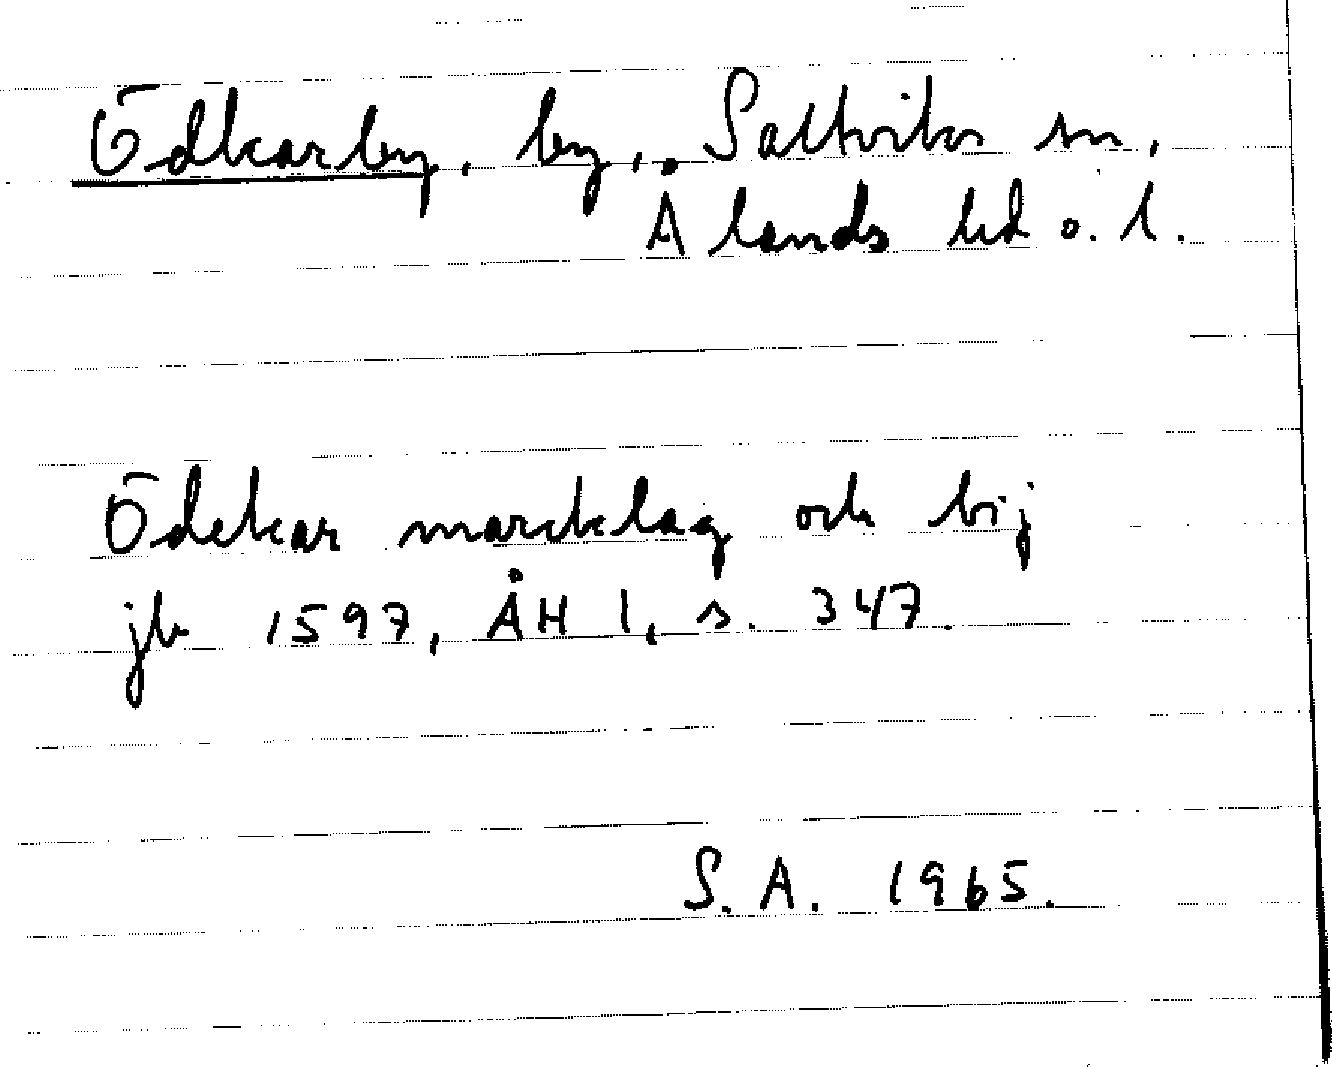 Ödkarby, by, Saltviks sn,
Ålands hd o. l.
Ödekar marcklag och bij
jb 1597, ÅH 1, s. 347.
S. A. 1965.